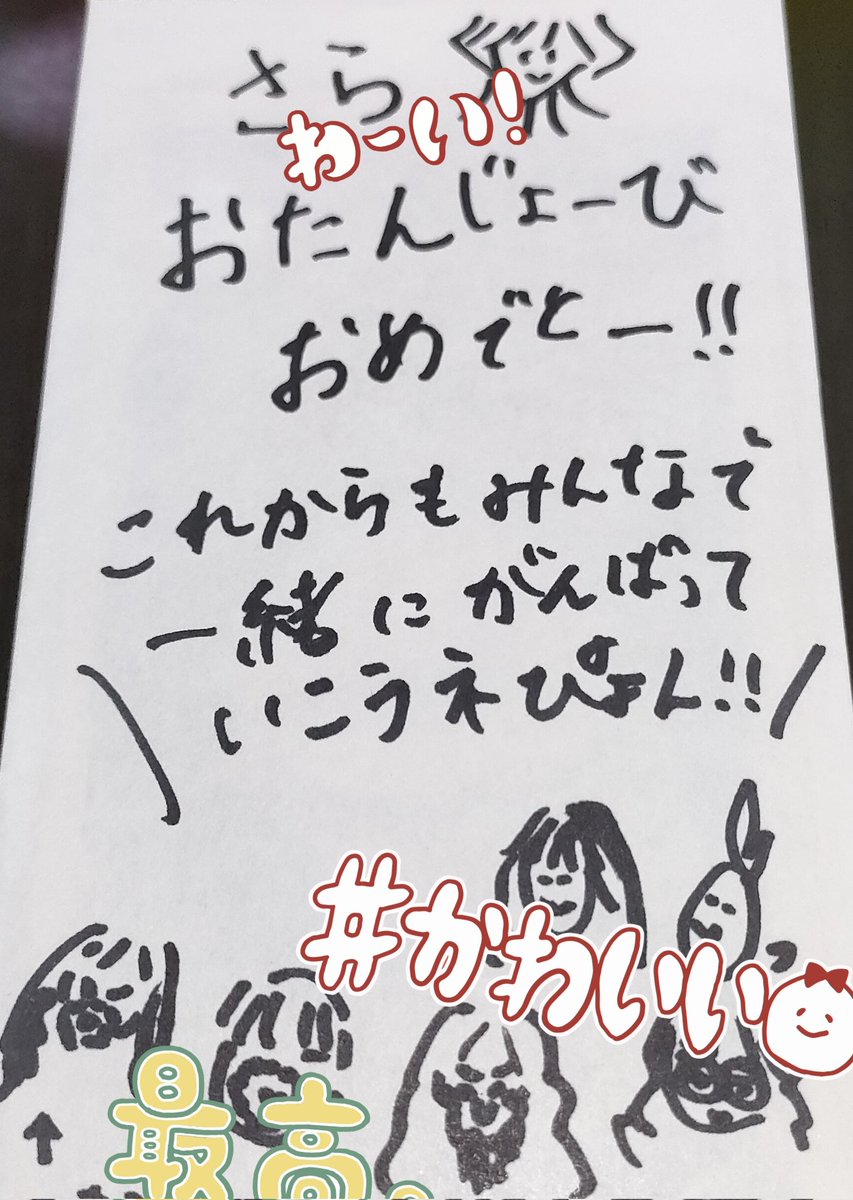 さら
わーい!
おたんじょーび
おめでとー!!
これからもみんなで
一緒にがんばって
いこうネぴょん!!
#かわいい
最高。